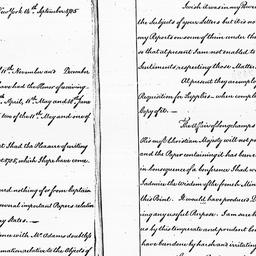 New York 14th September 1785
11th November and December
have had the Honor of receiving
April, 11th May and 18 June
two of the 11th May and one of
I had the Pleasure of writing
1785, which I hope have come
and nothing of or from Captain
several important Papers relative
States.
ence with Mr Adams doubtless
mation relative to the Objects of
I wish it was in my Power
the Subjects of your Letters but it is no
my Reports on some of them under the
so that at present I am not enabled to
Sentiments respecting those Matters
At present they are employ
Requisition for Supplies when comple
Copy of it.
The Affair of Longchamps
His most Christian Majesty will not p
and the Paper containing it has been
in consequence of a conference I had w
I admire the wisdom of the french Min
this Point. It would have produced D
ing any useful Purpose. I am one
us by this temperate and prudent
have been done by harsh and irritating